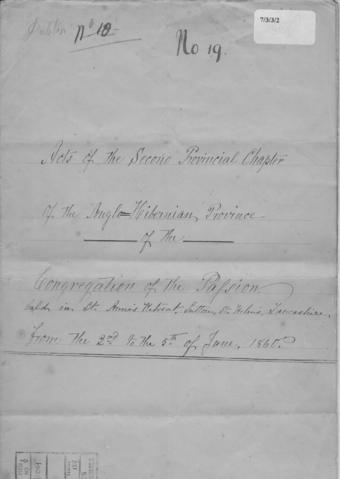 7/3/3/2
Dublin No 18
No 19.
Acts of the Second Provincial Chapter
of the Anglo=Hibernian Province
of the
Congregation of the Passion
held in St. Anne's Retreat, Sutton, St. Helens, Lancashire.
From the 2nd to the 5th of June, 1860.